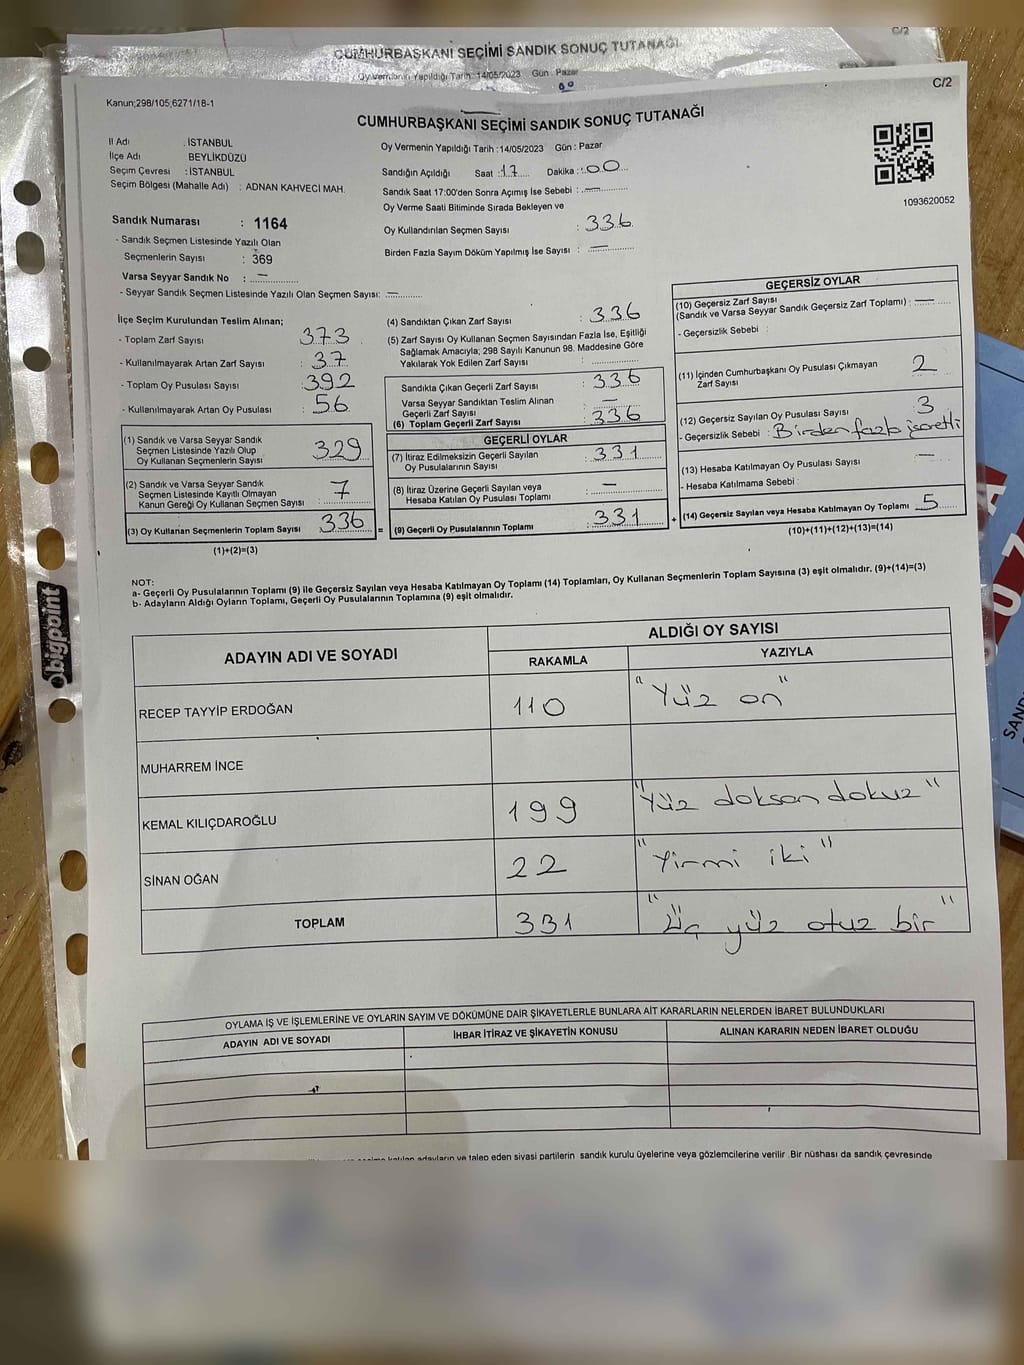 C/2
CUMHURBAŞKANI SEÇİMİ SANDIK SONUÇ TUTANAĞI
Oy Vermenin Yapıldığı Tarih : 14/05/2023 Gün : Pazar
C/2
Kanun;298/105,6271/18-1
CUMHURBAŞKANI SEÇİMİ SANDIK SONUÇ TUTANAĞI
İl Adı : İSTANBUL
İlçe Adı BEYLİKDÜZÜ
Seçim Çevresi : İSTANBUL
Seçim Bölgesi (Mahalle Adı) : ADNAN KAHVECİ MAH.
Oy Vermenin Yapıldığı Tarih : 14/05/2023 Gün : Pazar
Sandığın Açıldığı Saat : 17 Dakika : 00
Sandık Saat 17:00'den Sonra Açımış İse Sebebi : —
Oy Verme Saati Bitiminde Sırada Bekleyen ve
Oy Kullandırılan Seçmen Sayısı : 336
Birden Fazla Sayım Döküm Yapılmış İse Sayısı : —
1093620052
Sandık Numarası : 1164
- Sandık Seçmen Listesinde Yazılı Olan
Seçmenlerin Sayısı : 369
Varsa Seyyar Sandık No : —
- Seyyar Sandık Seçmen Listesinde Yazılı Olan Seçmen Sayısı: —
İlçe Seçim Kurulundan Teslim Alınan;
- Toplam Zarf Sayısı : 373
- Kullanılmayarak Artan Zarf Sayısı : 37
- Toplam Oy Pusulası Sayısı : 392
- Kullanılmayarak Artan Oy Pusulası : 56
(1) Sandık ve Varsa Seyyar Sandık
Seçmen Listesinde Yazılı Olup
Oy Kullanan Seçmenlerin Sayısı : 329
(2) Sandık ve Varsa Seyyar Sandık
Seçmen Listesinde Kayıtlı Olmayan
Kanun Gereği Oy Kullanan Seçmen Sayısı : 7
(3) Oy Kullanan Seçmenlerin Toplam Sayısı 336 =
(1)+(2)=(3)
(4) Sandıktan Çıkan Zarf Sayısı : 336
(5) Zarf Sayısı Oy Kullanan Seçmen Sayısından Fazla İse, Eşitliği
Sağlamak Amacıyla; 298 Sayılı Kanunun 98. Maddesine Göre
Yakılarak Yok Edilen Zarf Sayısı :
Sandıkta Çıkan Geçerli Zarf Sayısı : 336
Varsa Seyyar Sandıktan Teslim Alınan
Geçerli Zarf Sayısı : —
(6) Toplam Geçerli Zarf Sayısı : 336
GEÇERLİ OYLAR
(7) İtiraz Edilmeksizin Geçerli Sayılan
Oy Pusulalarının Sayısı : 331
(8) İtiraz Üzerine Geçerli Sayılan veya
Hesaba Katılan Oy Pusulası Toplamı : —
(9) Geçerli Oy Pusulalarının Toplamı : 331 +
GEÇERSİZ OYLAR
(10) Geçersiz Zarf Sayısı
(Sandık ve Varsa Seyyar Sandık Geçersiz Zarf Toplamı) : —
- Geçersizlik Sebebi :
(11) İçinden Cumhurbaşkanı Oy Pusulası Çıkmayan
Zarf Sayısı : 2
(12) Geçersiz Sayılan Oy Pusulası Sayısı : 3
- Geçersizlik Sebebi : Birden fazla işaretli
(13) Hesaba Katılmayan Oy Pusulası Sayısı : —
- Hesaba Katılmama Sebebi :
(14) Geçersiz Sayılan veya Hesaba Katılmayan Oy Toplamı : 5
(10)+(11)+(12)+(13)=(14)
NOT:
a- Geçerli Oy Pusulalarının Toplamı (9) ile Geçersiz Sayılan veya Hesaba Katılmayan Oy Toplamı (14) Toplamları, Oy Kullanan Seçmenlerin Toplam Sayısına (3) eşit olmalıdır. (9)+(14)=(3)
b- Adayların Aldığı Oyların Toplamı, Geçerli Oy Pusulalarının Toplamına (9) eşit olmalıdır.
bigpoint
ADAYIN ADI VE SOYADI ALDIĞI OY SAYISI
RAKAMLA YAZIYLA
RECEP TAYYİP ERDOĞAN 110 "Yüz on"
MUHARREM İNCE
KEMAL KILIÇDAROĞLU 199 "Yüz doksan dokuz"
SİNAN OĞAN 22 "Yirmi iki"
TOPLAM 331 "Üç yüz otuz bir"
OYLAMA İŞ VE İŞLEMLERİNE VE OYLARIN SAYIM VE DÖKÜMÜNE DAİR ŞİKAYETLERLE BUNLARA AİT KARARLARIN NELERDEN İBARET BULUNDUKLARI
ADAYIN ADI VE SOYADI İHBAR İTİRAZ VE ŞİKAYETİN KONUSU ALINAN KARARIN NEDEN İBARET OLDUĞU
katılan adayların ve talep eden siyasi partilerin sandık kurulu üyelerine veya gözlemcilerine verilir. Bir nüshası da sandık çevresinde